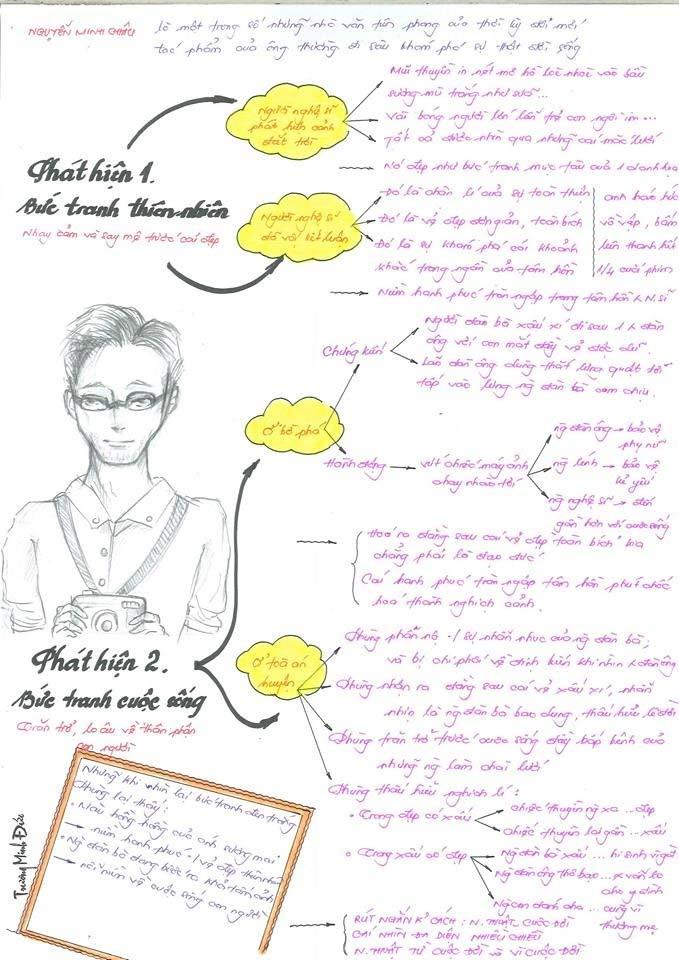 NGUYỄN MINH CHÂU
là một trong số những nhà văn tiên phong của thời kỳ đổi mới
tác phẩm của ông thường đi sâu khám phá sự thật đời sống
Phát hiện 1.
Bức tranh thiên nhiên
Nhạy cảm và say mê trước cái đẹp
Người nghệ sĩ
phát hiện cảnh
đắt trời
Mũi thuyền in nét mơ hồ lòe nhòe vào bầu
sương mù trắng như sữa...
Vài bóng người lớn lẫn trẻ con ngồi im...
Tất cả được nhìn qua những cái mắc lưới
Nó đẹp như bức tranh mực tàu của 1 danh họa
Người nghệ sĩ
đã vội kết luận
Đó là chân lí của sự toàn thiện
Đó là vẻ đẹp đơn giản, toàn bích
Đó là sự khám phá cái khoảnh
khắc trong ngần của tâm hồn
anh háo hức
vồ vập, bấm
liên thanh hết
1/4 cuối phim
Niềm hạnh phúc tràn ngập trong tâm hồn N.sĩ
Ở bờ phá
Chứng kiến
Người đàn bà xấu xí đi sau 1 đàn
ông với con mắt đầy vẻ độc dữ.
Lão đàn ông dùng thắt lưng quật tới
tấp vào lưng ng đàn bà cam chịu.
Hành động
vứt chiếc máy ảnh
chạy nhào tới
ng đàn ông → bảo vệ
phụ nữ
ng lính → bảo vệ
kẻ yếu
ng nghệ sĩ → đến
gần hơn với cuộc sống
Hoá ra đằng sau cái vẻ đẹp toàn bích kia
chẳng phải là đạo đức.
Cái hạnh phúc tràn ngập tâm hồn phút chốc
hoá thành nghịch cảnh.
Phát hiện 2.
Bức tranh cuộc sống
Trăn trở, lo âu về thân phận
con người
Ở toà án
huyện
Phùng phẫn nộ -/ sự nhẫn nhục của ng đàn bà;
và bị chi phối về định kiến khi nhìn đàn ông
Phùng nhận ra đằng sau cái vẻ xấu xí, nhẫn
nhịn là ng đàn bà bao dung, thấu hiểu lẽ đời
Phùng trăn trở trước cuộc sống đầy bấp bênh của
những ng làm chài lưới
Phùng thấu hiểu nghịch lí:
• Trong đẹp có xấu
chiếc thuyền ng xa ... đẹp
chiếc thuyền lại gần ... xấu
• Trong xấu có đẹp
Ng đàn bà xấu ... hi sinh vì gđ
Ng đàn ông thô bạo ... vẫn lo
cho gia đình
Ng con đánh cha ... cũng vì
thương mẹ
RÚT NGẮN K/CÁCH: N.THUẬT CUỘC ĐỜI
CÁI NHÌN ĐA DIỆN NHIỀU CHIỀU
N.THUẬT TỪ CUỘC ĐỜI VÀ VÌ CUỘC ĐỜI
Những khi nhìn lại bức tranh đen trắng
Phùng lại thấy:
• Màu hồng hồng của ánh sương mai
niềm hạnh phúc -/ vẻ đẹp thiên nhiên
• Ng đàn bà đang bước ra khỏi tấm ảnh
nỗi niềm về cuộc sống con người
Trương Minh Đức